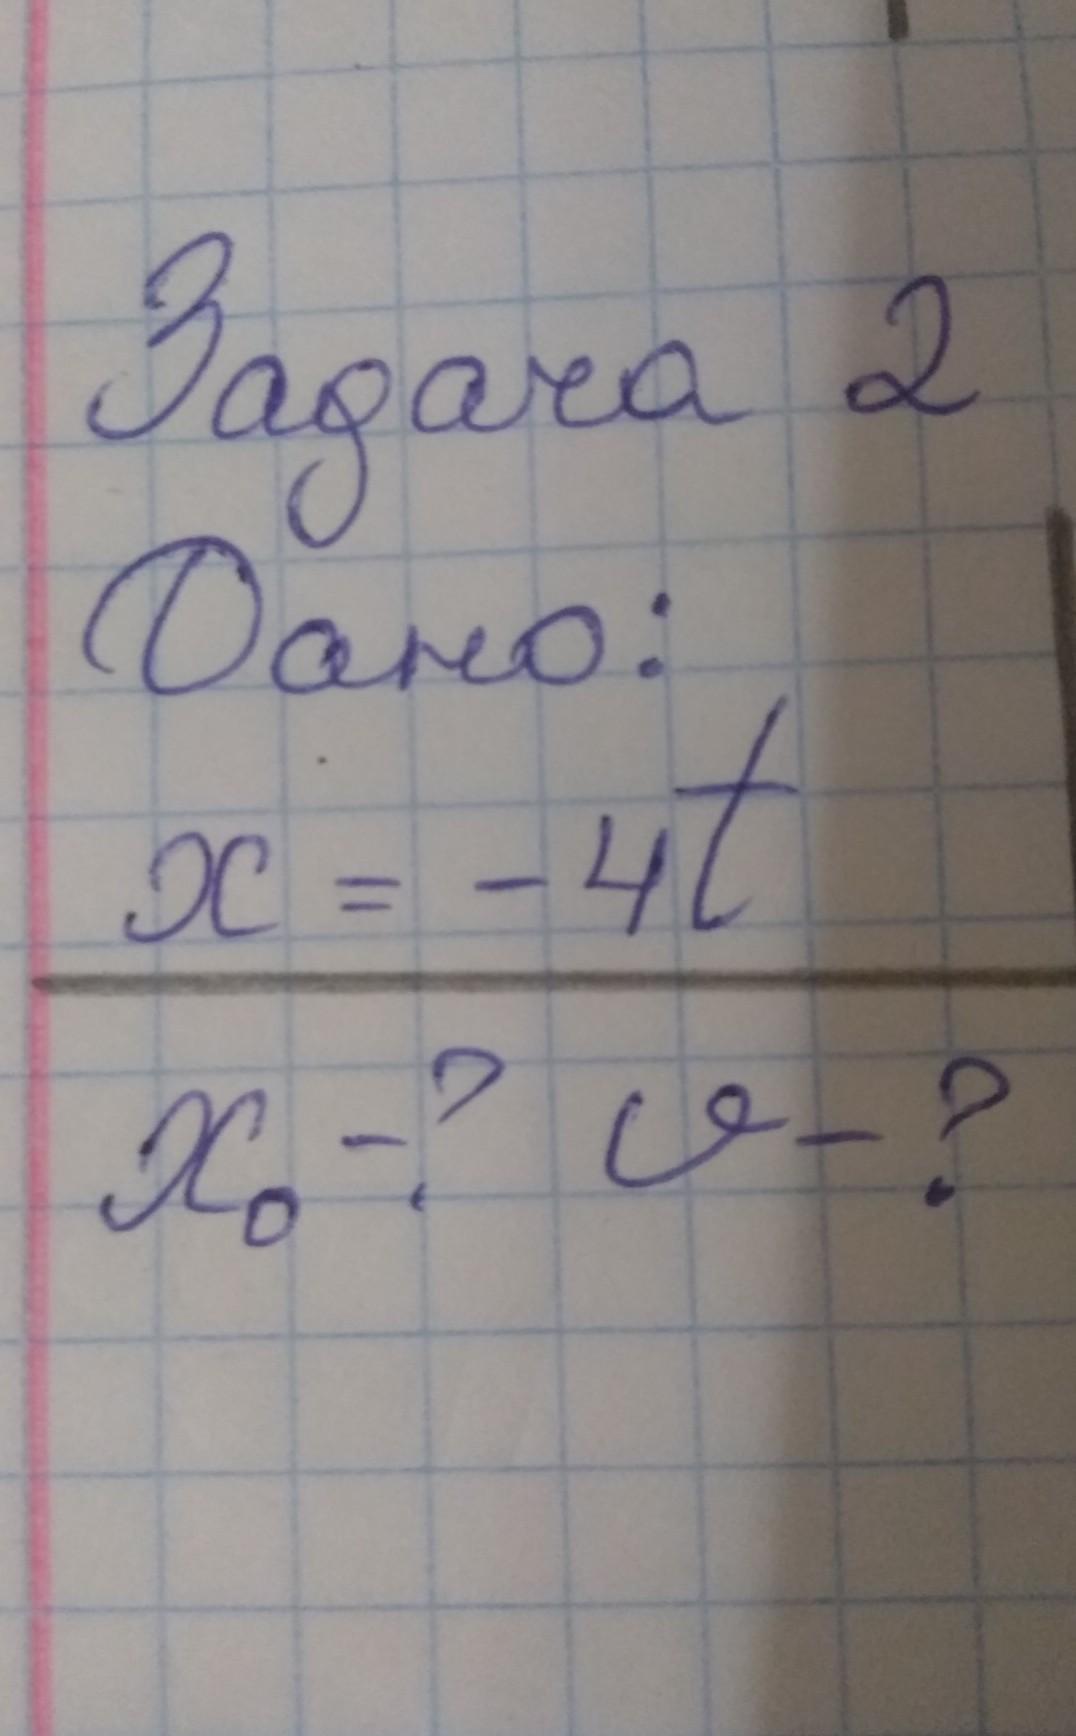 Задача 2
Дано:
x = - 4t
x₀ - ? v - ?